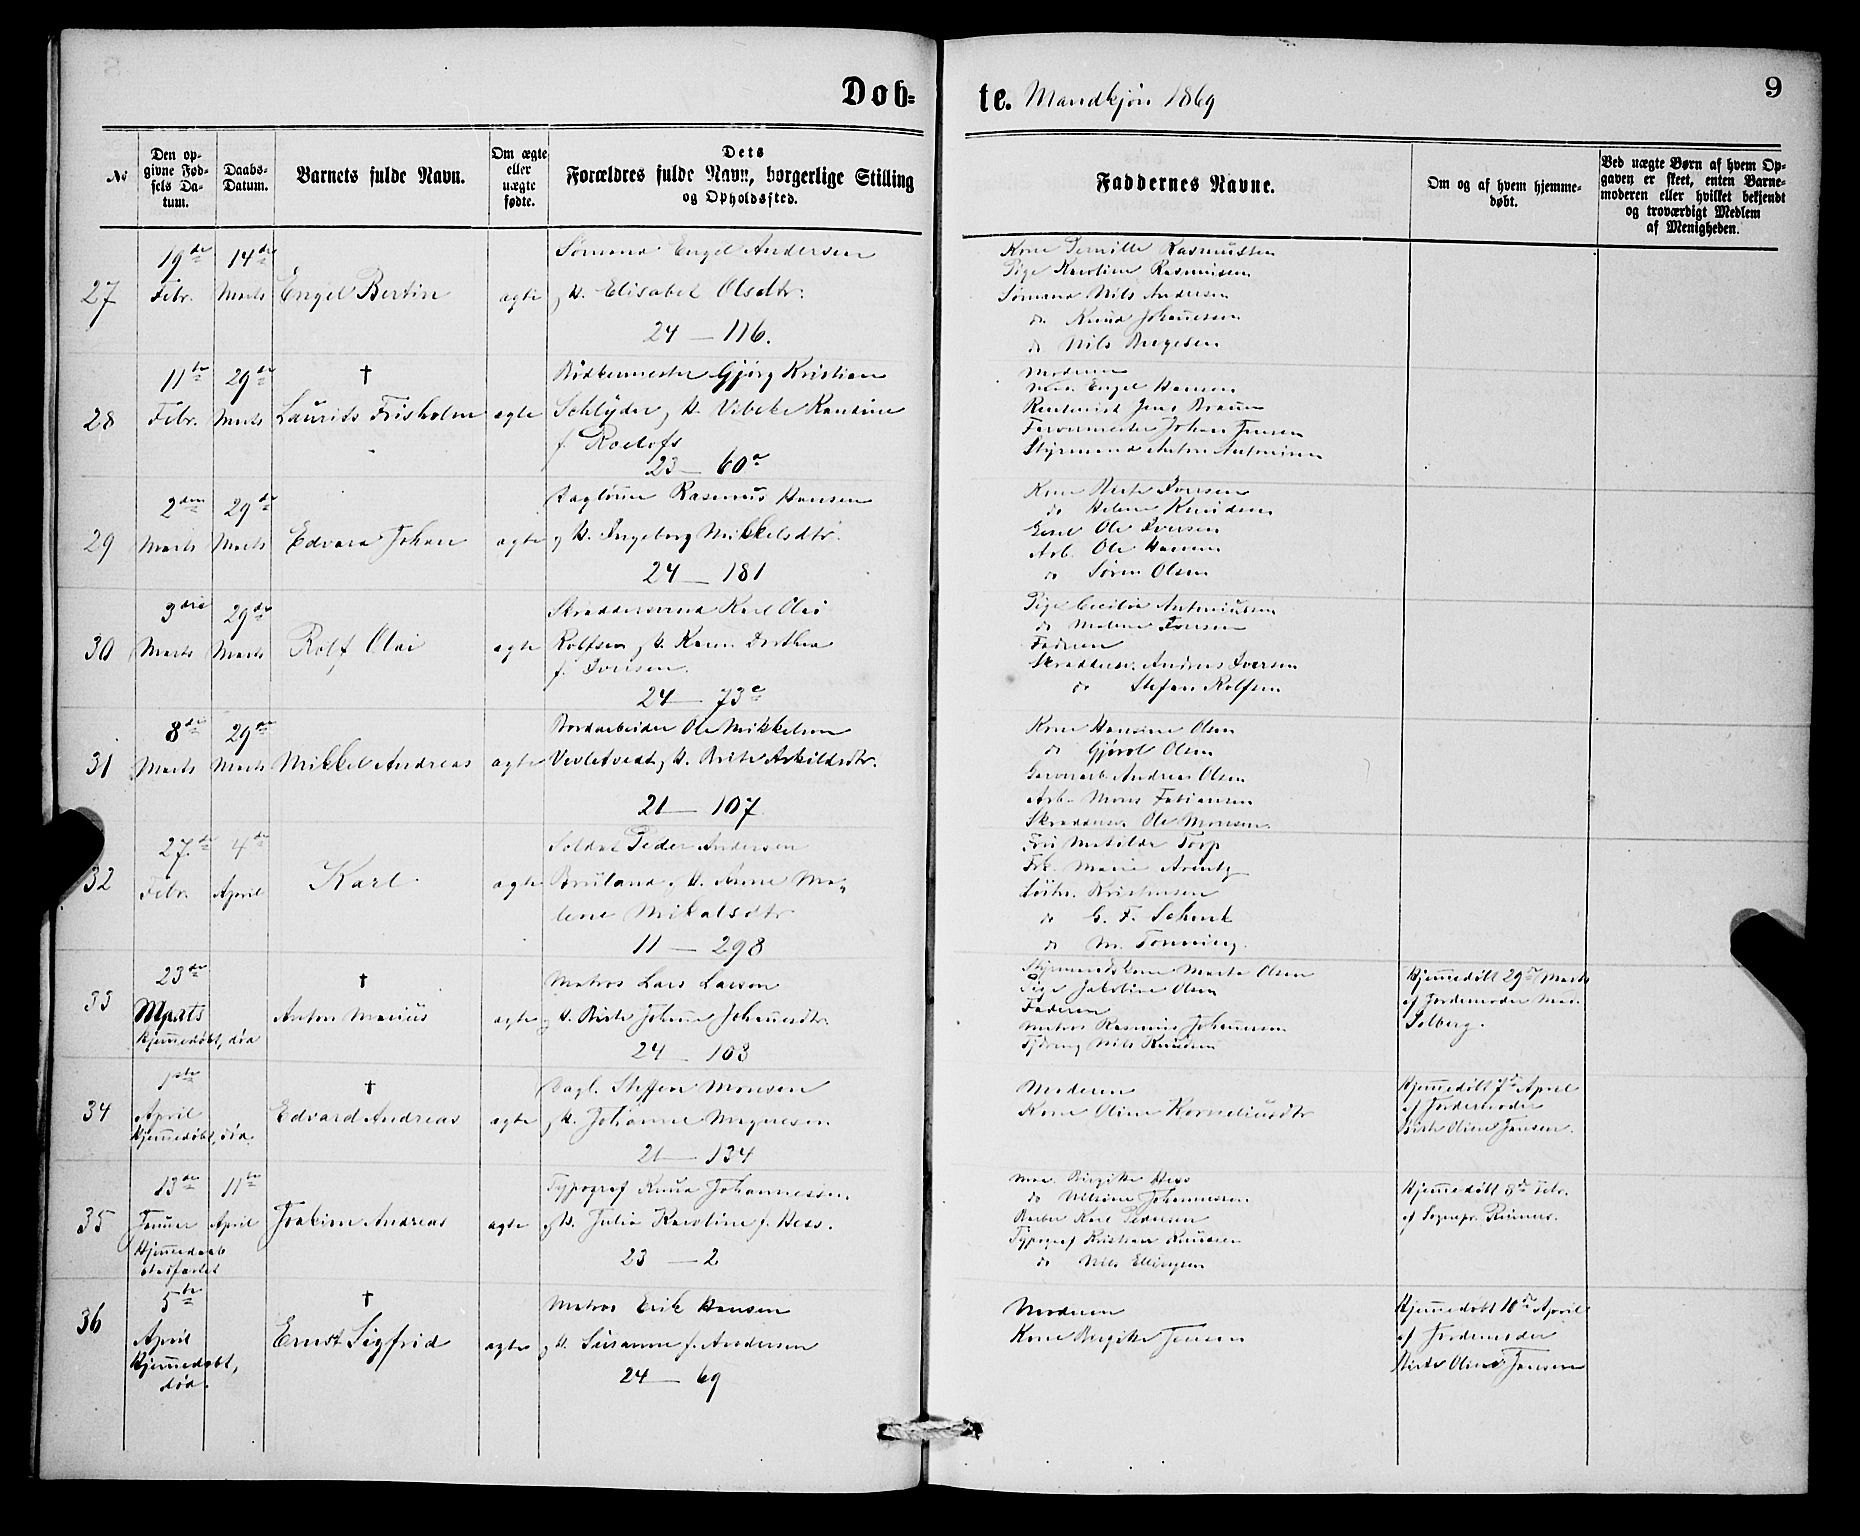 Døb=
te. Mandkjøn 1869
9
No
Den op-
givne Fød-
sels Da-
tum.
Daabs-
Datum.
Barnets fulde Navn.
Om ægte
eller
uægte
fødte.
Dets
Forældres fulde Navn, borgerlige Stilling
og Opholdssted.
Faddernes Navne.
Om og af hvem hjemme-
døbt.
Ved uægte Børn af hvem Op-
gaven er skeet, enten Barne-
moderen eller hvilket bekjendt
og troværdigt Medlem
af Menigheden.
27
19de
Febr.
14de
Marts
Engel Bertin
ægte
Sømand Engel Andersen
og H. Elisabet Olsdtr.
24 — 116.
Kone Pernille Rasmussen
Pige Karoline Rasmussen
Sømand Nils Andersen
do Knud Johannesen
do Nils Børgesen
28
11te
Febr.
29de
Marts
†
Laurits Frisholm
ægte
Bødkermester Gjørg Kristian
Schlyder og H. Vibeke
f. Roelofs
23 — 60a
Moderen
Mad. Engel Hansen
Jens
Johan Jensen
Styrmand Anton Antonisen
29
2den
Marts
29de
Marts
Edvard Johan
ægte
Daglønner Rasmus Hansen
og H. Ingeborg Mikkelsdtr.
24 — 181
Kone Iversen
do Helene Knudsen
Ole Iversen
Arb. Ole Hansen
do Søren Olsen
30
3die
Marts
29de
Marts
Rolf Olai
ægte
Skræddersvend Karl Olai
Rolfsen og H. Karen Dorthea
f. Iversen.
24 — 73c
Pige Cecilia Antoniussen
do Malene Iversen
Faderen
Skræddersv. Andreas Iversen
do Stefan Rolfsen
31
8de
Marts
29de
Marts
Mikkel Andreas
ægte
Bordarbeider Ole Mikkelsen
Vevletvedt og H. Brite Askildsdtr.
21 — 107.
Kone Hansine Olsen
do Gjørol Olsen
Garverarb. Andreas Olsen
Arb. Mons Fabiansen
Skræddersv. Ole Monsen.
32
27de
Febr.
4de
April
Karl
ægte
Soldat Peder Andersen
Bruland og H. Anne Ma-
lene Mikalsdtr.
11 — 298
Fru Matilde Torp
Frk. Marie Arentz
Kristensen
do G. F. Schenk
do M. Tonning.
33
23de
Marts
Hjemmedøbt, død
†
Anton Marius
ægte
Matros Lars Larson
og H. Birte Johanne Johannesdtr.
24 — 103
Styrmandskone Marta Olsen
Pige Jakobine Olsen
Faderen
Matros Rasmus Johannesen
Tjdreng Nils Knudsen
Hjemmedøbt 29de Marts
af Jordemoder Mad.
Solberg.
34
1ste
April
Hjemmedøbt, død.
†
Edvard Andreas
ægte
Dagl. Steffen Monsen
og H. Johanne Magnesen
21 — 134
Moderen
Kone Oline Korneliusdtr
Hjemmedøbt 7de April
af Jordemoder
Birte Oline Jansen.
35
13de
Januar
Hjemmedaab
stadfæstet
11te
April
Joakim Andreas
ægte
Typograf Knud Johannessen
og H. Julie Karoline f. Hess.
23 — 2
Mad. Birgitte Hess
do Johannessen
Barber Karl Pedersen
Typograf Kristian Knudsen
do Nils Ellingsen
Hjemmedøbt 8de Febr.
af Sognepr.
36
5te
April
Hjemmedøbt,
død.
†
Ernst Sigfrid
ægte
Matros Erik Hansen
og H. Susanne f. Andersen
24 — 69
Moderen
Kone Birgitte Jensen
Hjemmedøbt 10de April
af Jordemoder
Birte Oline Jansen